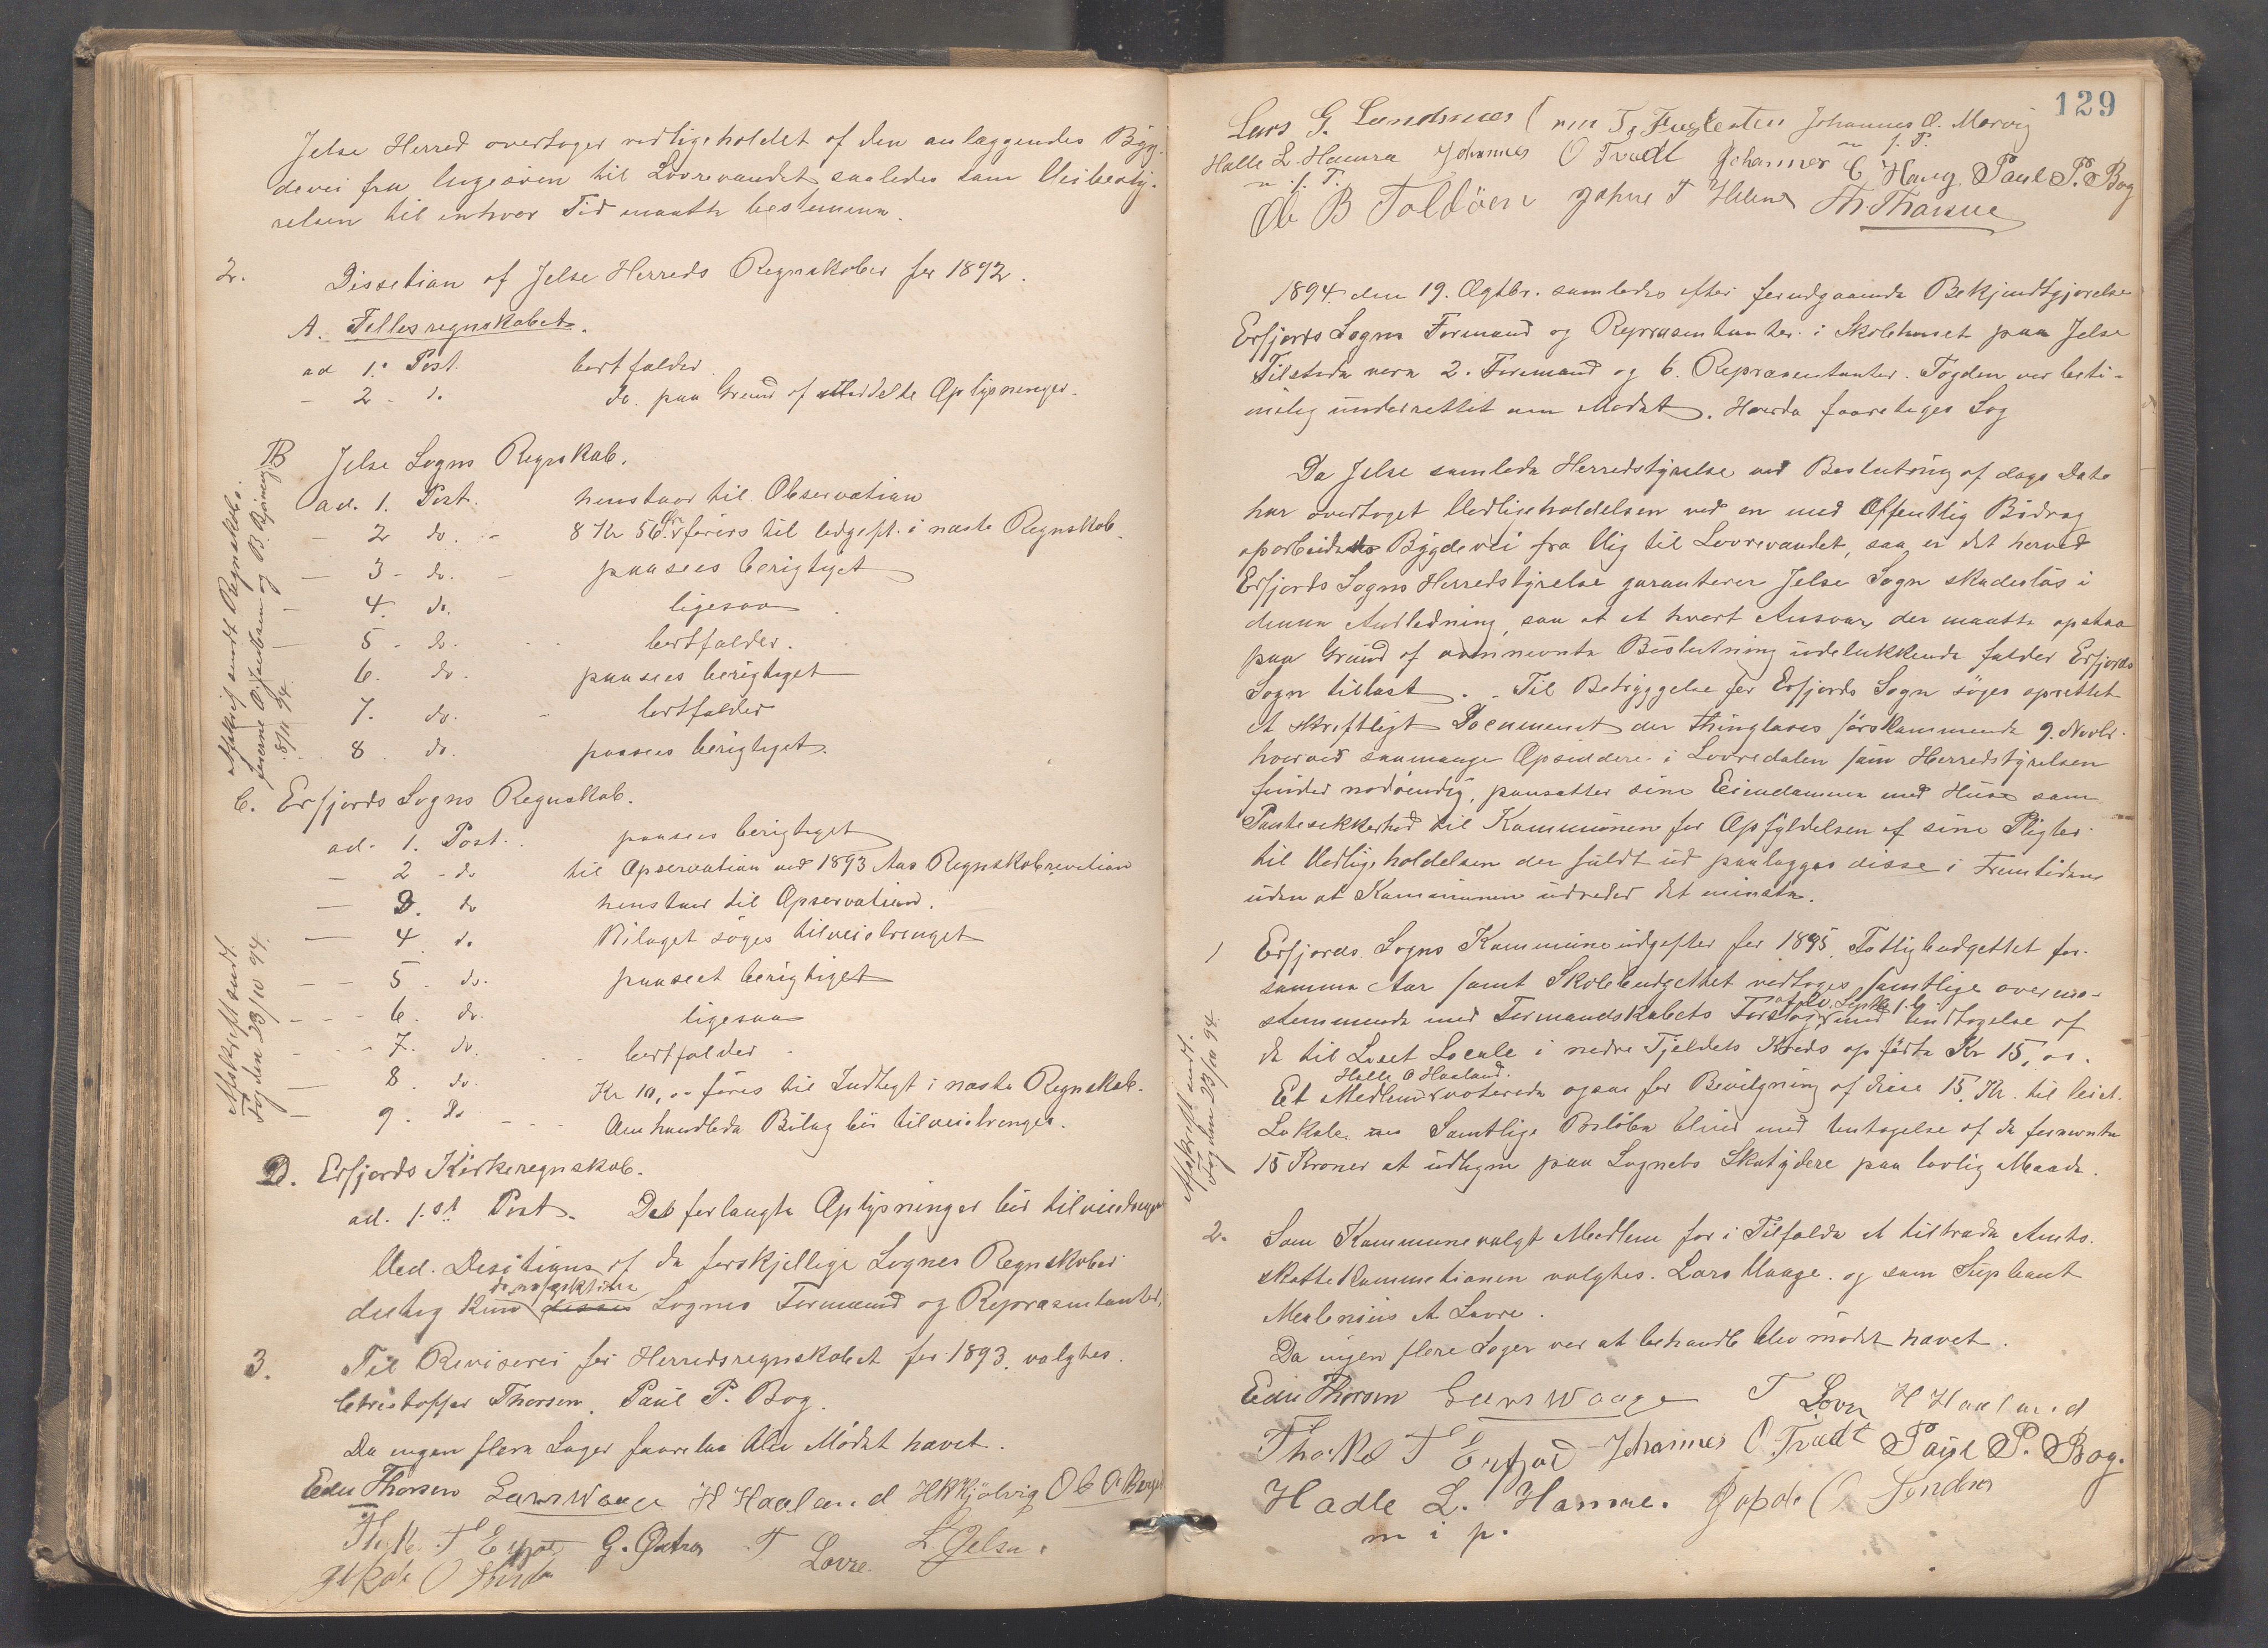 Jelse Herred overtager vedligeholdet af den anlæggendes Byg-
devei fra Ungesøen til Lovrevandet saaledes som Veibesty-
relsen til enhver Tid maatte bestemme.
2. Dissetian af Jelse Herreds Regnskaber for 1892.
A. Fellesregnskabet.
ad 1. Post. bortfalder
- 2 - d. do. paa Grund af meddelte Oplysninger.
B Jelse Sogns Regnskab.
ad. 1. Post. henstaar til Observation
- 2 do. - 8 Kr 56 Øre føres til Udgift i næste Regnskab.
- 3 - do. - paasees berigtiget
- 4. do. ligesaa
- 5 - do. bortfalder.
6. do. paasees berigtiget
7. do. - bortfalder
8. do. paasees berigtiget.
Afskrift sendt Regnskabs-
førerne O. Jacobsen og B. Bjøineig
8/11 94.
C. Erfjords Sogns Regnskab.
ad. 1. Post. paasees berigtiget
- 2 - do til Opservation ved 1893 Aars Regnskabsrevition
- 3. do henstaar til Opservation.
- 4 do Bilaget søges tilveiebrenget
- 5. do. paaseet berigtiget
- 6. do. ligesaa
- 7. do. bortfalder
- 8. do. Kr 10,00 føres til Indtægt i næste Regnskab.
- 9. do - Omhandlede Bilag bør tilveiebrenges.
Afskrift sendt
Fogden 23/10 94.
D. Erfjords Kirkeregnskab.
ad. 1.st Post. De forlangte Oplysninger bør tilveiebrenges
Ved Desitionen af de forskjellige Sognes Regnskaber
deltog kun de respektive disse Sognes Formænd og Repræsentanter.
3. Til Revisorer for Herredsregnskabet for 1893. valgtes.
Christoffer Thorsen, Paul P. Bog.
Da ingen flere Sager forelaa blev Mødet hævet.
Edu Thorsen Lars Waage H Haaland HK Kjølvig
Thorkel T Erfjord T Lovre. L Jelsa.
129
Lars G. Sandnes T. Fuglesten Johannes O. Marvig
m. f. P.
Halle L. Hamre Johannes O Tvedt Johannes C Haug Paul P. Bog
m. f. P.
Ole B Foldøen Johne T Helme
1894 den 19. Ogtbr. samledes efter forudgaaende Bekjendtgjørelse
Erfjords Sogns Formænd og Repræsentanter i Skolehuset paa Jelse
Tilstede vare 2. Formænd og 6. Repræsentanter. Fogden var beti-
melig underrettet om Mødet. Hvorda foretoges Sag
Da Jelse samlede Herredstyrelse ved Beslutning af dags Dato
har overtaget Vedligeholdelsen ved en med Offentlig Bidrag
oparbeidede Bygdevei fra Vig til Lovrevandet, saa er det herved
Erfjords Sogns Herredstyrelse garanterer Jelse Sogn skadesløs i
denne Anledning, saa at et hvert Ansvar, der maatte opstaa
paa Grund af omnevnte Beslutning udelukkende falder Erfjords
Sogn tillast. - Til Betryggelse for Erfjords Sogn søges oprettet
et skriftligt Document der thinglæses førstkommende 9. Novbr.
hvorved saamange Opsiddere i Lovredalen som Herredstyrelsen
finder nødvendig, pansætter sine Eiendomme med Huse som
Pantesekkerhed til Kommunen for Opfyldelsen af sine Pligter
til Vedligeholdelsen der fuldt ud paalægges disse i Fremtiden
uden at Kommunen udreder det minste.
1 Erfjords Sogns Kommuneudgefter for 1895. Fattigbudgettet for
samme Aar samt Skolebudgettet vedtoges samtlige overens-
stemmende med Formandskabets Forslag med Undtagelse af
de til Leiet Locale i nedre Tjeldets Kreds opførte Kr 15,00.
Halle O Haaland.
Et Medlem voterede ogsaa for Bevilgning af disse 15. Kr. til leiet
Lokale. Samtlige Posløba blive med Untagelse af de fornevnte
15 Kroner at udligne paa Sognets Skatydere paa lovlig Maade.
Afskrift sendt
Fogden 23/10 94.
2. Som Kommunevalgt Medlem for i Tilfælde at tiltræde Amts-
skattekommetionen valgtes. Lars Vaage. og som Supleant
Meltenius A Lovre.
Da ingen flere Sager var at behandle blev mødet hævet.
Edu Thorsen Lars Waage T Lovre H Haaland
Thorkel T Erfjord Johannes O Tvedt Paul P. Bog.
Hadle L. Hamre. Jakob O Søndenes
m i p.